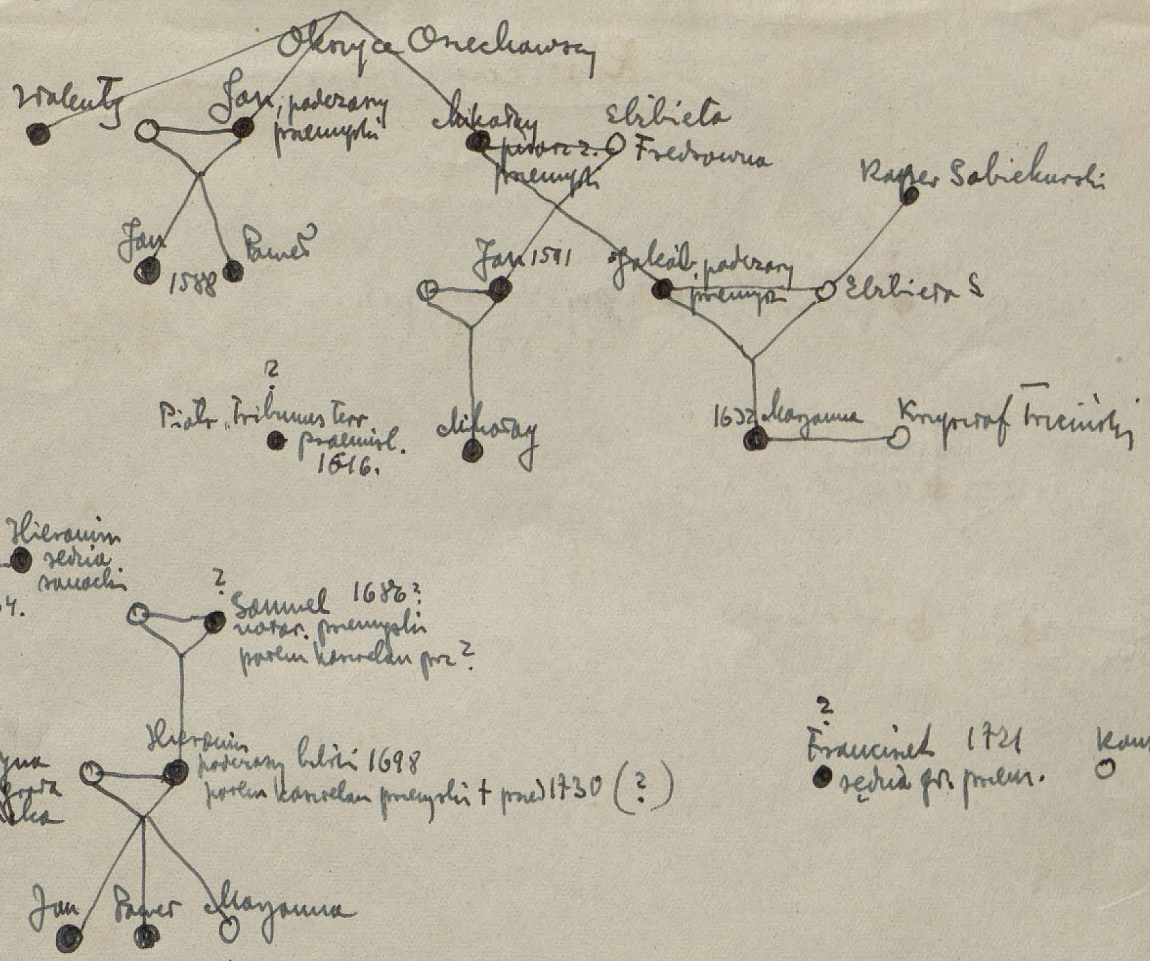 Okszyce Orzechowscy
Walenty
Jan, podczaszy
przemyski
Mikołaj
pisarz z.
przemyski
Elżbieta
Fredrówna
Kasper Sobiekurski
Jan
1588
Paweł
Jan 1591
Jakób, podczaszy
przemyski
Elżbieta S
?
Piotr, Tribunus terr.
praemisl.
1616.
Mikołaj
1632 Maryanna
Krzysztof Trzciński
Hieronim
sędzia
sanocki
4.
?
Samuel 1686?
notar. przemyski
potem kasztelan prz?
Hieronim
podczaszy bełski 1698
potem kasztelan przemyski † przed 1730 (?)
?
Franciszek 1721
sędzia gr. przem.
Jan
Paweł
Maryanna